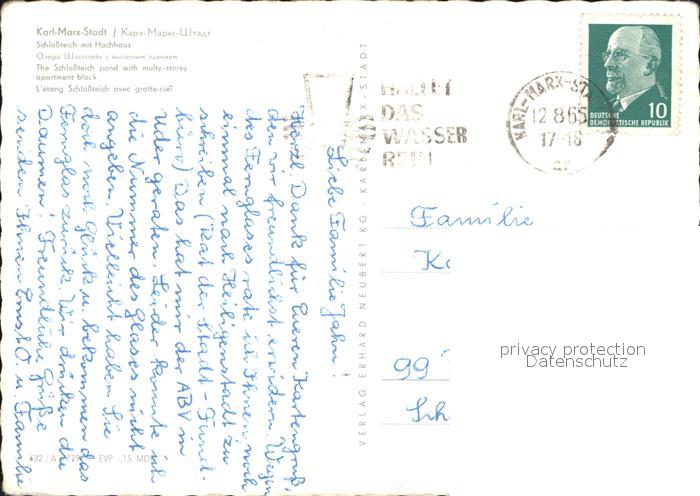 Karl-Marx-Stadt / Карл-Маркс-Штадт
Schloßteich mit Hochhaus
Озеро Шлостейх с высотным зданием
The Schloßteich pond with multy-storey
apartment block
L'étang Schloßteich avec gratte-ciel
HALTET
DAS
WASSER
REIN
KARL-MARX-ST
12 8 65
17-18
DEUTSCHE
DEMOKRATISCHE REPUBLIK
10
Liebe Familie Jahn!
Herzl. Dank für Eueren Kartengruß,
den wir freundlichst erwidern. Wegen
des Fernglases rate ich Ihnen noch
einmal nach Heiligenstadt zu
schreiben (Rat der Stadt - Fund-
büro) Das hat mir der ABV in
Uder geraten. Leider konnte ich
die Nummer des Glases nicht
angeben. Vielleicht haben Sie
doch noch Glück u. bekommen das
Fernglas zurück. Wir drücken die
Daumen! Freundliche Grüße
senden Ihnen Ernst O. u. Familie
VERLAG ERHARD NEUBERT KG · KARL-MARX-STADT
Familie
K
99
Sch
privacy protection
Datenschutz
EVP -,15 MDN